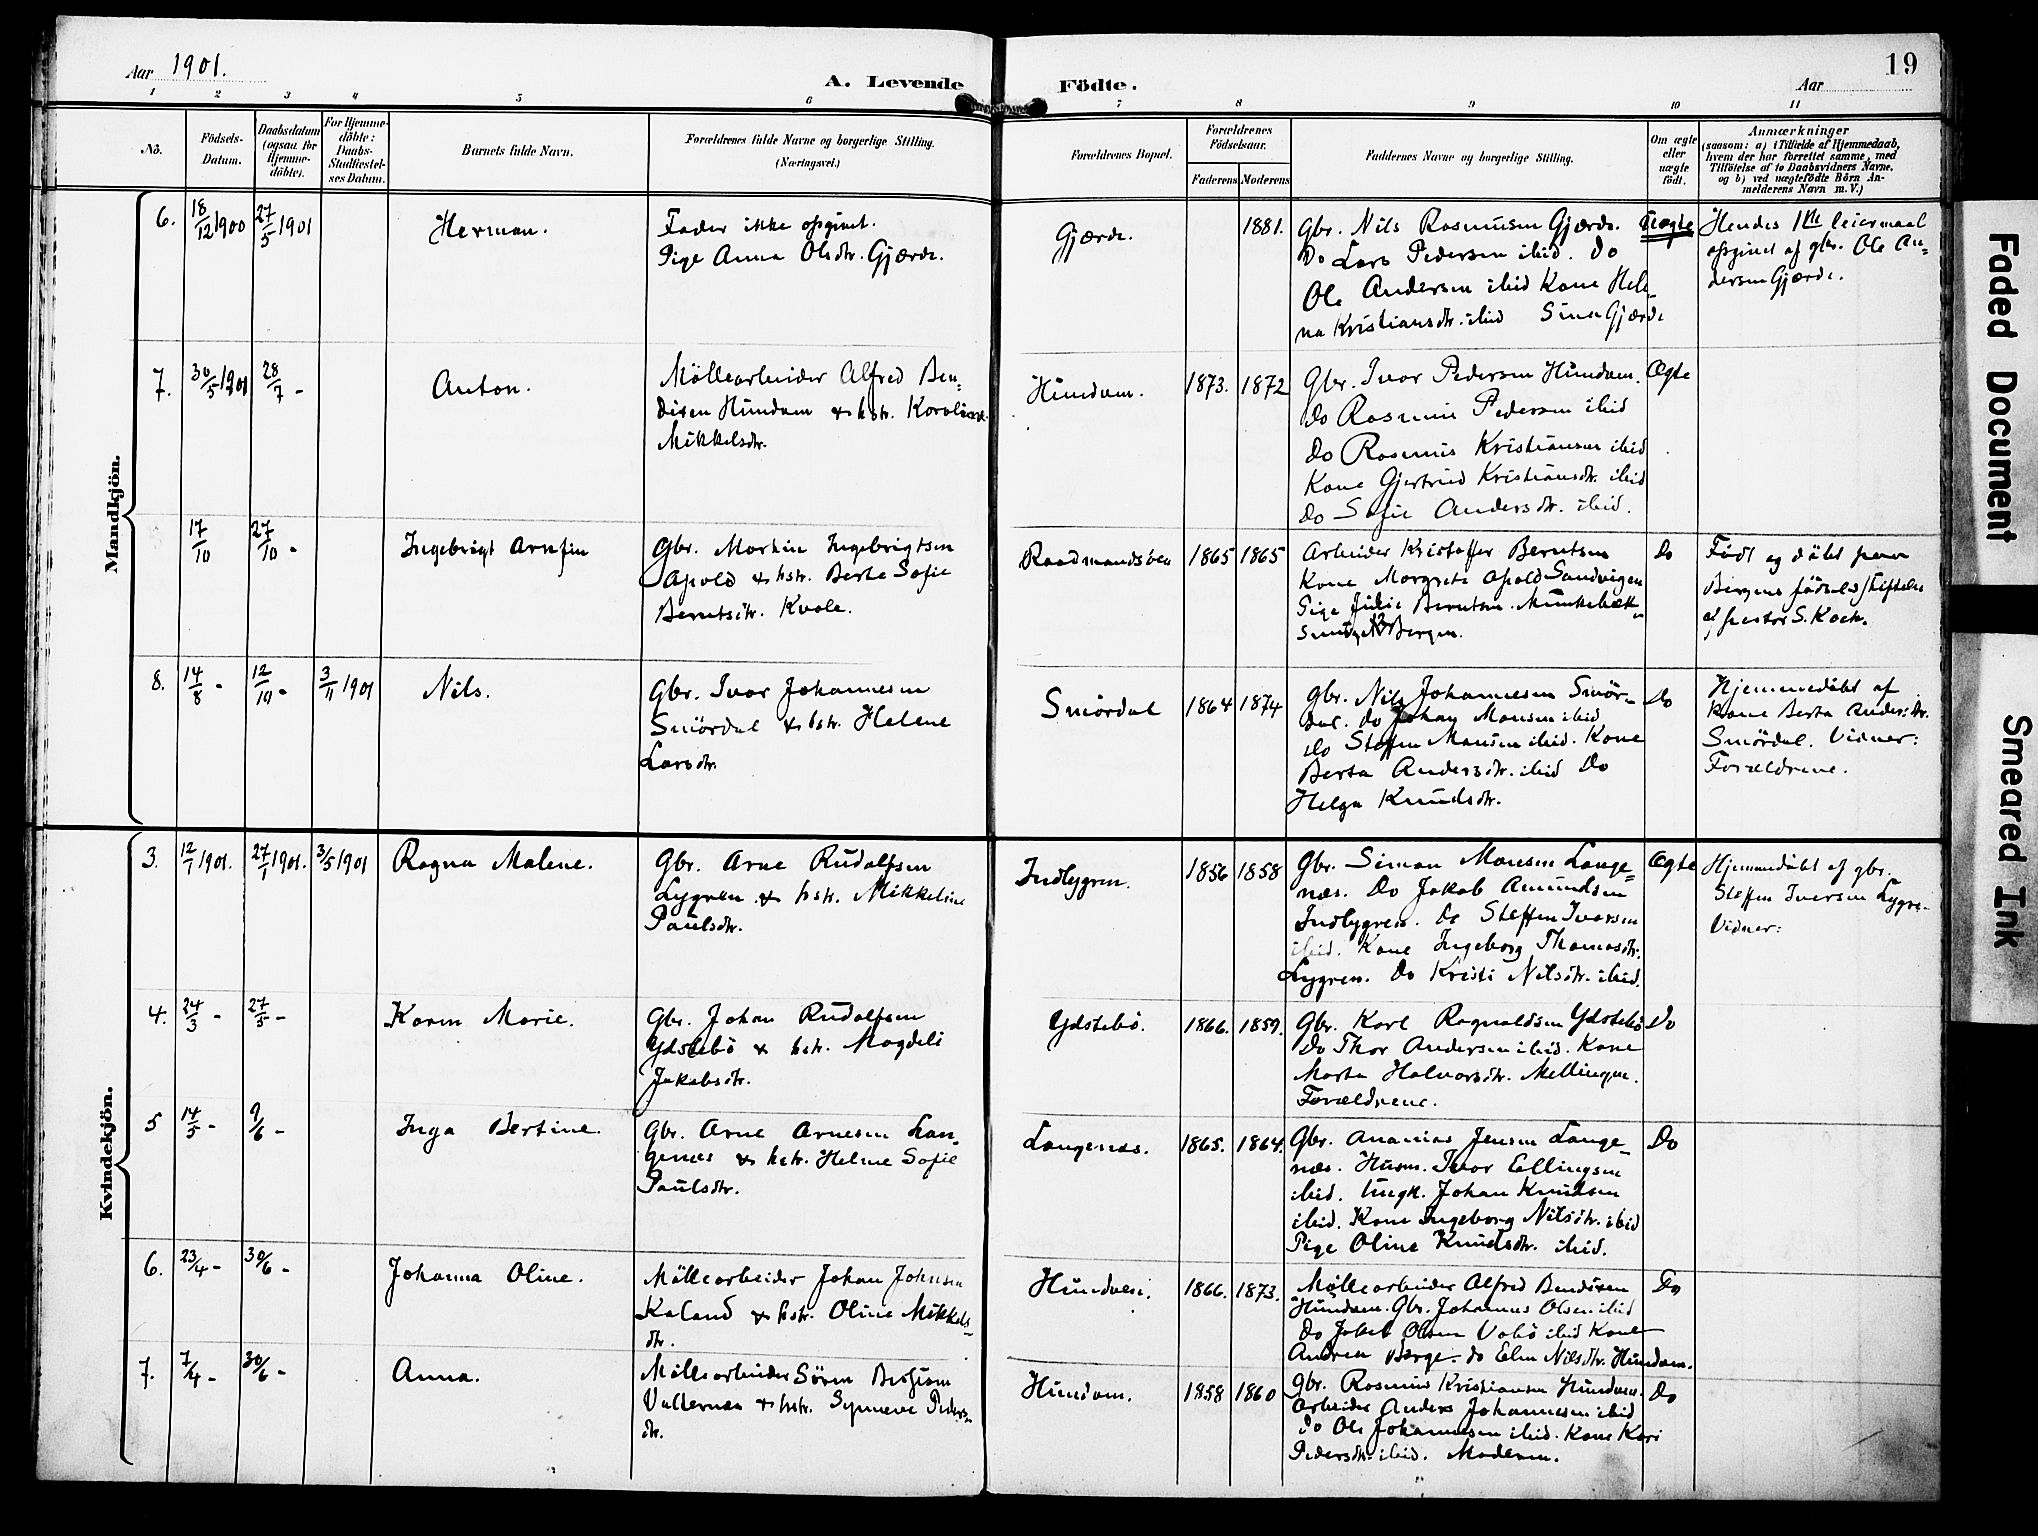 Aar 1901.
A. Levende
Födte.
Aar
19
1 2 3 4 5 6 7 8 9 10 11
No.
Födsels-
Datum.
Daabsdatum
(ogsaa for
Hjemme-
döbte).
For Hjemme-
döbte:
Daabs-
Stadfæstel-
ses Datum.
Barnets fulde Navn.
Forældrenes fulde Navne og borgerlige Stilling.
(Næringsvei.)
Forældrenes Bopæl.
Forældrenes
Födselsaar.
Faderens Moderens
Faddernes Navne og borgerlige Stilling.
Om ægte
eller
uægte
födt.
Anmærkninger
(saasom: a) i Tilfælde af Hjemmedaab,
hvem der har forrettet samme, med
Tilföielse af to Daabsvidners Navne,
og b) ved uægtefödte Börn An-
melderens Navn m. V.)
Mandkjön.
6. 18/12 1900 27/5 1901
Herman.
Fader ikke opgivet.
Pige Anna Olsdtr. Gjærde.
Gjærde.
1881.
Gbr. Nils Rasmusen Gjærde.
Do Lars Pedersen ibid. Do
Ole Andersen ibid Kone Hele-
na Kristiansdtr. ibid Sina Gjærde
Uægte
Hendes 1ste leiermaal
opgivet af gbr. Ole An-
dersen Gjærde.
7. 30/5 1901 28/7 -
Anton.
Möllearbeider Alfred Ben-
dixen Hundam & hstr. Karoline
Mikkelsdtr.
Hundam.
1873. 1872
Gbr. Ivar Pedersen Hundam.
Do Rasmus Pedersen ibid
Do Rasmus Kristiansen ibid
Kone Gjertrud Kristiansdtr. ibid
Do Sofie Andersdtr. ibid.
Ægte
17/10 27/10 -
Ingebrigt Arnfin
Gbr. Martin Ingebrigtsen
Apold & hstr. Berte Sofie
Berntsdtr. Kvale.
Raadmandsöen
1865 1865
Arbeider Kristoffer Berntsen
Kone Margrete Apold Sandvigen
Pige Julie Berntsen. Munkebæk-
Bergen.
Do
Födt og döbt paa
Bergens födselsstiftelse
af pastor S. Koch.
8. 14/8 - 12/10 - 3/11 1901
Nils.
Gbr. Ivar Johannesen
Smördal & hstr. Helene
Larsdtr.
Smördal
1864 1874
Gbr. Nils Johannesen Smör-
dal. do Johan Monsen ibid
do Steffen Monsen ibid. Kone
Berta Andersdtr. ibid Do
Helga Knudsdtr.
Do
Hjemmedöbt af
Kone Berta Andersdtr.
Smördal. Vidner:
Forældrene.
Kvindekjön.
3. 12/1 1901. 27/1 1901. 3/5 1901
Ragna Malene.
Gbr. Arne Rudolfsen
Lygren & hstr. Mikkeline
Paulsdtr.
Indlygren.
1856 1858
Gbr. Simon Monsen Lange-
næs. Do Jakob Amundsen
Indlygren. Do Steffen Iversen
ibid. Kone Ingeborg Thomasdtr.
Lygren. Do Kristi Nilsdtr. ibid.
Ægte
Hjemmedöbt af gbr.
Steffen Iversen Lygre.
Vidner:
4. 24/3 - 27/5 -
Karen Marie.
Gbr. Johan Rudolfsen
Ydstebö & hstr. Magdeli
Jakobsdtr.
Ydstebö.
1866. 1859.
Gbr. Karl Ragnvaldsen Ydstebö
Do Thor Andersen ibid. Kone
Marta Halvorsdtr. Mellingen.
Forældrene.
Do
5 14/5 - 9/6 -
Inga Bertine.
Gbr. Arne Arnesen Lan-
genæs & hstr. Helene Sofie
Paulsdtr.
Langenæs.
1865. 1864.
Gbr. Ananias Jensen Lange-
næs. Husm. Ivar Ellingsen
ibid. Ungk. Johan Knudsen
ibid. Kone Ingeborg Nilsdtr. ibid
Pige Oline Knudsdtr. ibid.
Do
6. 23/4 - 30/6 -
Johanna Oline.
Möllearbeider Johan Johnsen
Kaland & hstr. Oline Mikkels-
dtr.
1866. 1873.
Möllearbeider Alfred Bendixen
Hundam. Gbr. Johannes Olsen ibid
Do Jakob Olsen Vabö ibid Kone
Andrea Berge. do Elen Nilsdtr. Hundam.
Do
7. 7/4 - 30/6 -
Anna.
Möllearbeider Sören
& hstr. Synneve Peders-
dtr.
Hundam.
1858 1860
Gbr. Rasmus Kristiansen Hundam.
Arbeider Anders Johannesen ibid
Do Ole Johannesen ibid. Kone Kari
Pedersdtr. ibid. Moderen.
Do
Faded Document
Smeared Ink